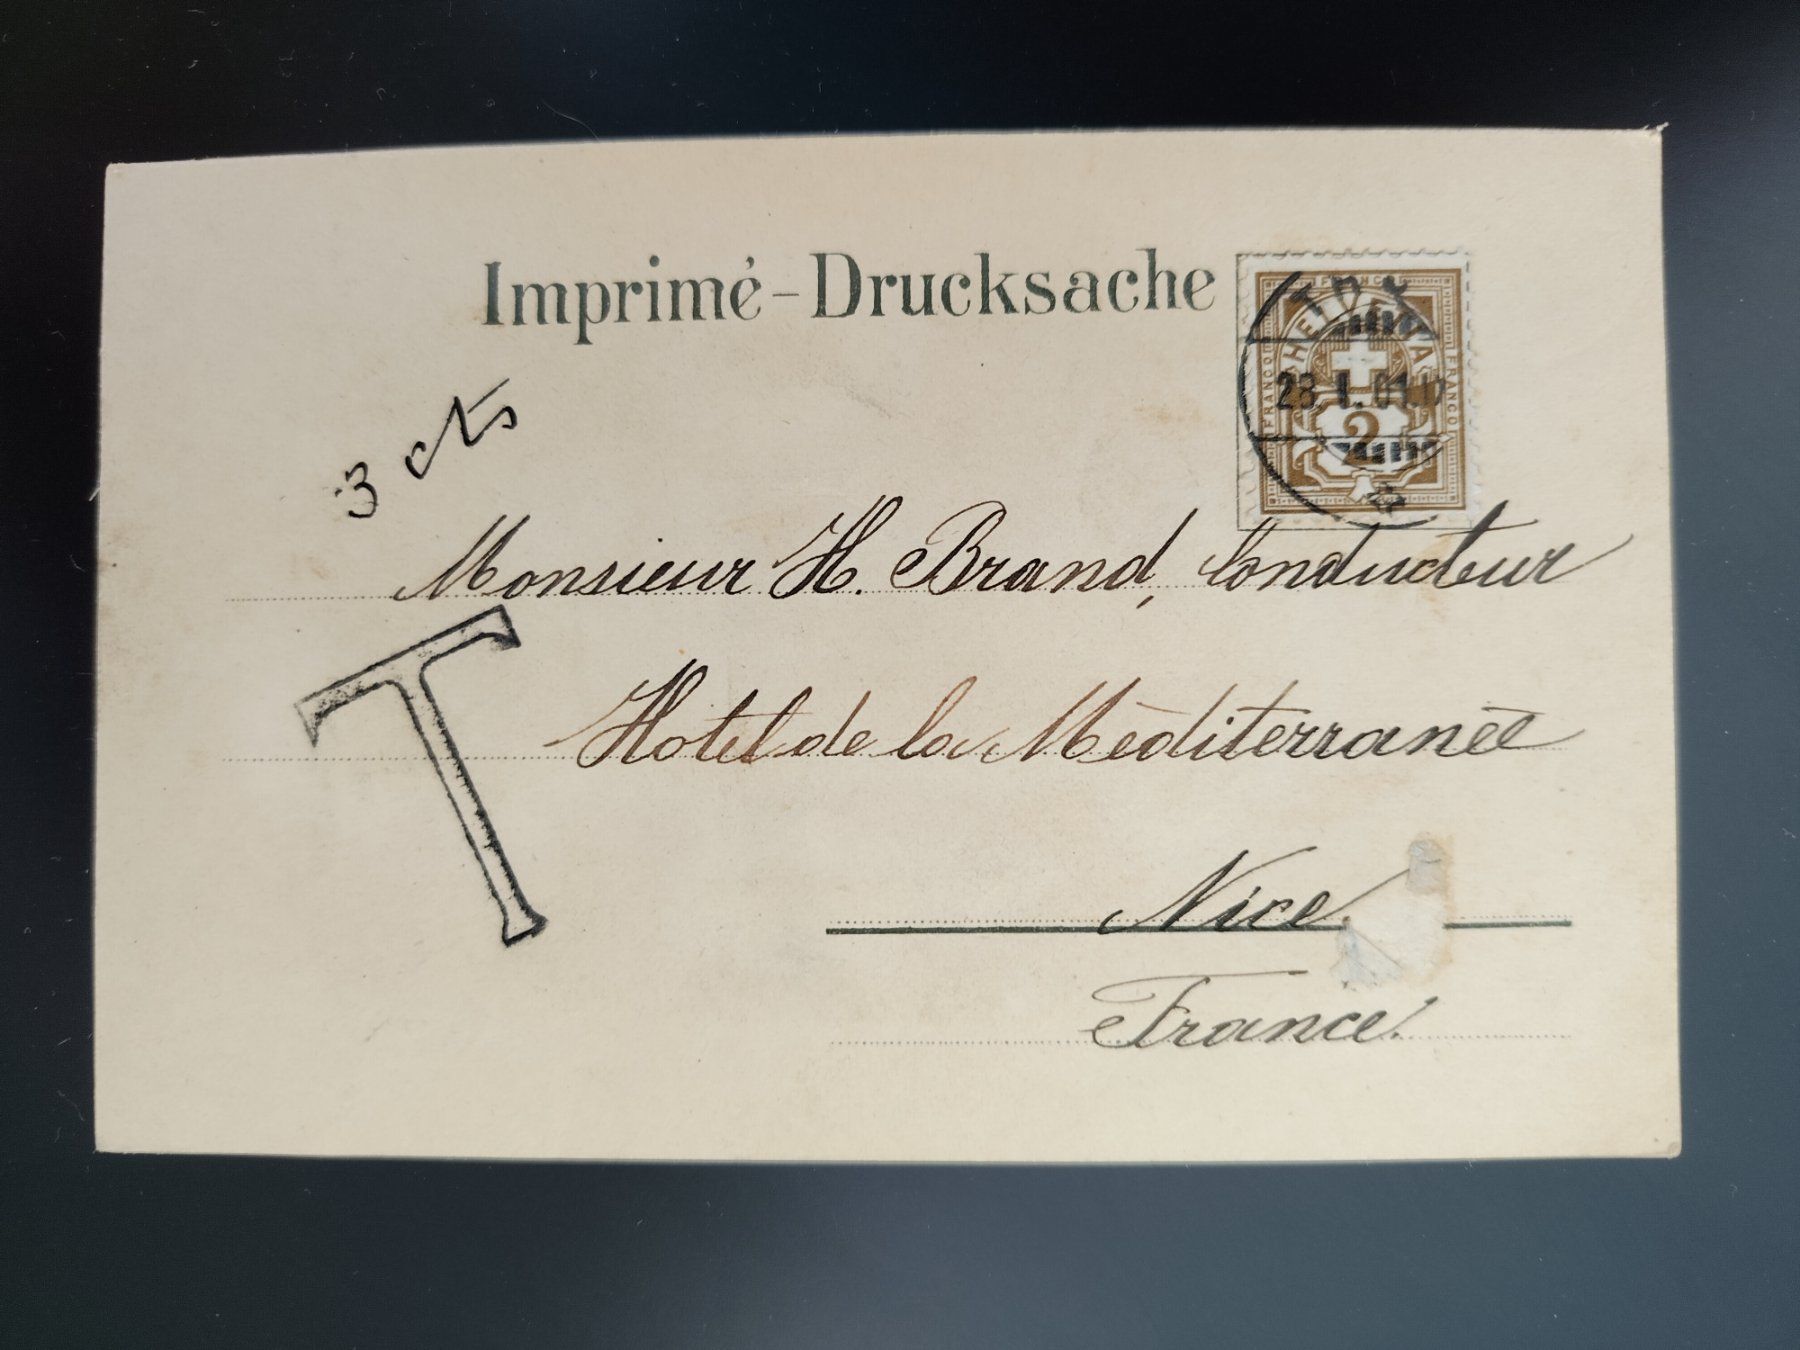 Imprimé-Drucksache
FRANCO
HELVETIA
FRANCO
FRANCO
28.I.01.
2
3 cts
Monsieur H. Brand, Conducteur
T
Hotel de la Méditerranée
Nice
France.